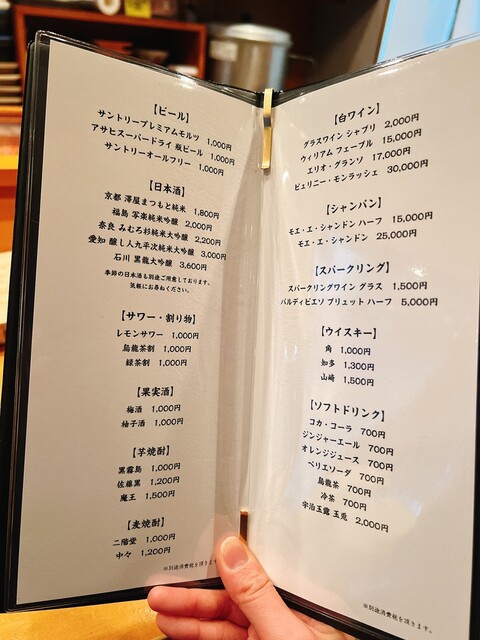 【ビール】
サントリープレミアムモルツ 1,000円
アサヒスーパードライ 瓶ビール 1,000円
サントリーオールフリー 1,000円
【日本酒】
京都 澤屋まつもと純米 1,800円
福島 写楽純米吟醸 2,000円
奈良 みむろ杉純米大吟醸 2,200円
愛知 醸し人九平次純米大吟醸 3,000円
石川 黒龍大吟醸 3,600円
季節の日本酒も別途ご用意しております。
気軽にお尋ねください。
【サワー・割り物】
レモンサワー 1,000円
烏龍茶割 1,000円
緑茶割 1,000円
【果実酒】
梅酒 1,000円
柚子酒 1,000円
【芋焼酎】
黒霧島 1,000円
佐藤黒 1,200円
魔王 1,500円
【麦焼酎】
二階堂 1,000円
中々 1,200円
※別途消費税を頂きます。
【白ワイン】
グラスワイン シャブリ 2,000円
ウィリアム フェーブル 15,000円
エリオ・グランソ 17,000円
ピュリニー・モンラッシェ 30,000円
【シャンパン】
モエ・エ・シャンドン ハーフ 15,000円
モエ・エ・シャンドン 25,000円
【スパークリング】
スパークリングワイン グラス 1,500円
バルディビエソ ブリュット ハーフ 5,000円
【ウイスキー】
角 1,000円
知多 1,300円
山崎 1,500円
【ソフトドリンク】
コカ・コーラ 700円
ジンジャーエール 700円
オレンジジュース 700円
ペリエソーダ 700円
烏龍茶 700円
冷茶 700円
宇治玉露 玉兎 2,000円
※別途消費税を頂きます。